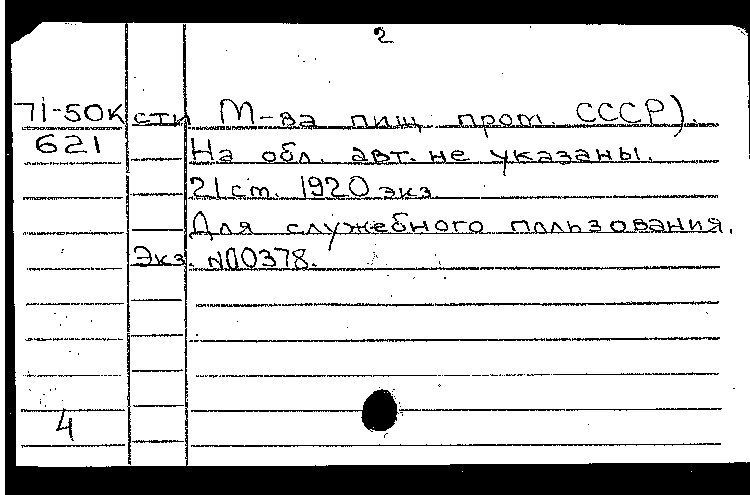 2
71-50к сти М-ва пищ. пром. СССР).
621 На обл. авт. не указаны.
21 ст. 1920 экз.
Для служебного пользования.
Экз. N00378.
4